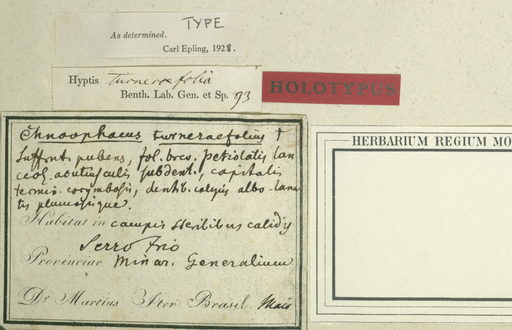 TYPE
As determined.
Carl Epling, 1928.
Hyptis turneraefolia
Benth. Lab. Gen. et Sp. 93
HOLOTYPUS
Chnoophacus turneraefolius †
Suffrut. pubens, fol. brev. petiolatis lan
ceol. acutiusculis subdent., capitalis
termin. corymbosis, dentib. calycis albo-lana
tis plumosisque.
Habitat in campis sterilibus calidis
Serro Frio
Provinciae Minar. Generalium
Dr Martius Iter Brasil. Maio
HERBARIUM REGIUM MO